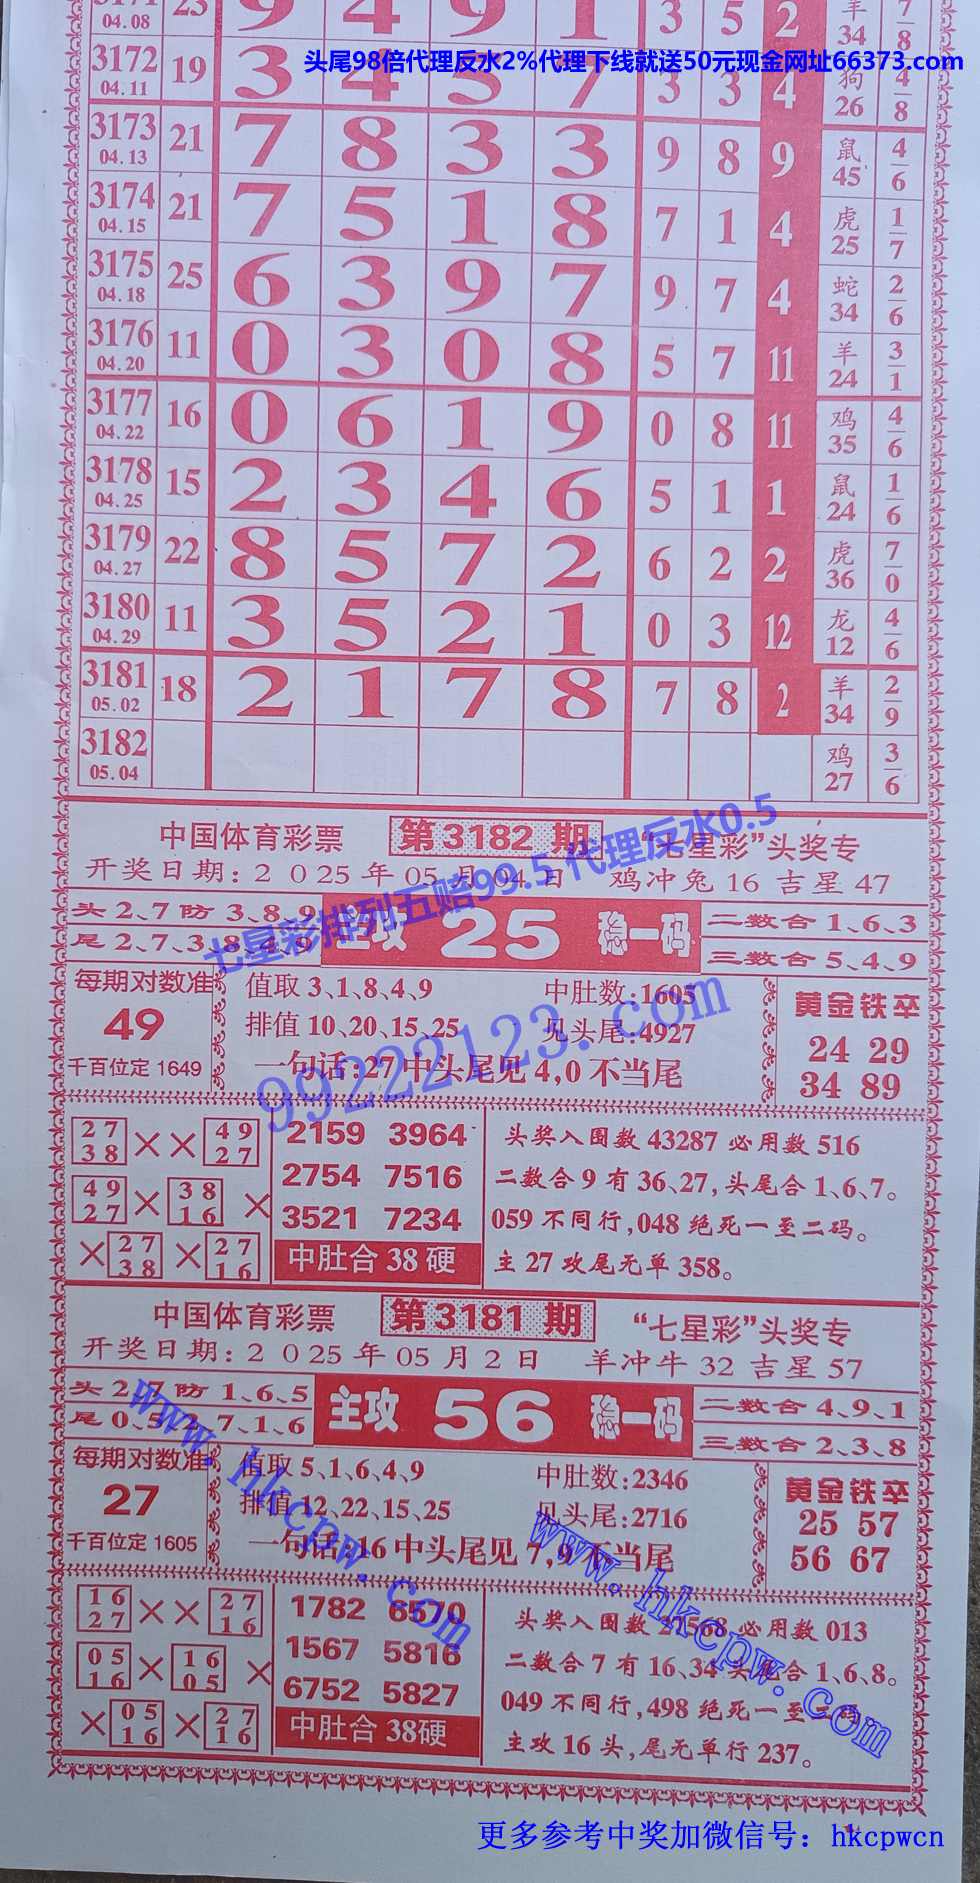 04.08 23 9 4 9 1 3 5 2 羊 34 7/8
头尾98倍代理反水2%代理下线就送50元现金网址66373.com
3172 04.11 19 3 4 5 7 3 3 4 狗 26 4/8
3173 04.13 21 7 8 3 3 9 8 9 鼠 45 4/6
3174 04.15 21 7 5 1 8 7 1 4 虎 25 1/7
3175 04.18 25 6 3 9 7 9 7 4 蛇 34 2/6
3176 04.20 11 0 3 0 8 5 7 11 羊 24 3/1
3177 04.22 16 0 6 1 9 0 8 11 鸡 35 4/6
3178 04.25 15 2 3 4 6 5 1 1 鼠 24 1/6
3179 04.27 22 8 5 7 2 6 2 2 虎 36 7/0
3180 04.29 11 3 5 2 1 0 3 12 龙 12 4/6
3181 05.02 18 2 1 7 8 7 8 2 羊 34 2/9
3182 05.04 鸡 27 3/6
中国体育彩票 第3182期 “七星彩”头奖专
开奖日期:2025年05月04日 鸡冲兔16吉星47
七星彩排列五赔99.5代理反水0.5
头2、7防3、8、9 攻 25 稳一码 二数合1、6、3
尾2、7、3、8、4、9 三数合5、4、9
每期对数准 值取3、1、8、4、9 中肚数:1605 黄金铁卒
49 排值10、20、15、25 见头尾:4927 24 29
千百位定1649 一句话:27中头尾见4,0不当尾 34 89
99222123.com
27 38 × × 49 27 2159 3964 头奖入围数43287必用数516
49 27 × 38 16 × 2754 7516 二数合9有36、27,头尾合1、6、7。
3521 7234 059不同行,048绝死一至二码。
× 27 38 × 27 16 中肚合38硬 主27攻尾无单358。
中国体育彩票 第3181期 “七星彩”头奖专
开奖日期:2025年05月2日 羊冲牛32吉星57
头27防1、6、5 主攻 56 稳一码 二数合4、9、1
尾0、5、2、7、1、6 三数合2、3、8
www.hkcpw.com
每期对数准 值取5、1、6、4、9 中肚数:2346 黄金铁卒
27 排值12、22、15、25 见头尾:2716 25 57
千百位定1605 一句话:16中头尾见7,9不当尾 56 67
www.hkcpw.com
16 27 × × 27 16 1782 6570 头奖入围数27568必用数013
05 16 × 16 05 × 1567 5816 二数合7有16、34头尾合1、6、8。
6752 5827 049不同行,498绝死一至二码。
× 05 16 × 27 16 中肚合38硬 主攻16头,尾无单行237。
更多参考中奖加微信号:hkcpwcn